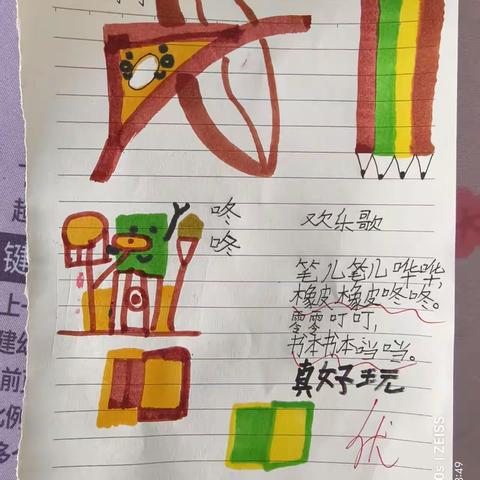 咚
咚
欢乐歌
笔儿笔儿哗哗,
橡皮橡皮咚咚。
零零叮叮,
书本书本当当。
真好玩
优
键
上一
前
比例
ZEISS
8:49